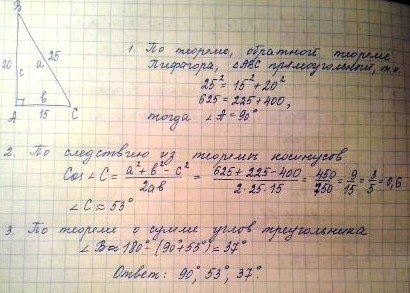 B
20
c
a
25
A
b
15
C
1. По теореме, обратной теореме
Пифагора, △ABC прямоугольный, т.к.
25² = 15² + 20²
625 = 225 + 400,
тогда ∠A = 90°
2. По следствию из теоремы косинусов
Cos ∠C = (a² + b² - c²)/(2ab) = (625 + 225 - 400)/(2·25·15) = 450/750 = 9/15 = 3/5 = 0,6
∠C ≈ 53°
3. По теореме о сумме углов треугольника
∠B ≈ 180° - (90° + 53°) = 37°
Ответ: 90°, 53°, 37°.